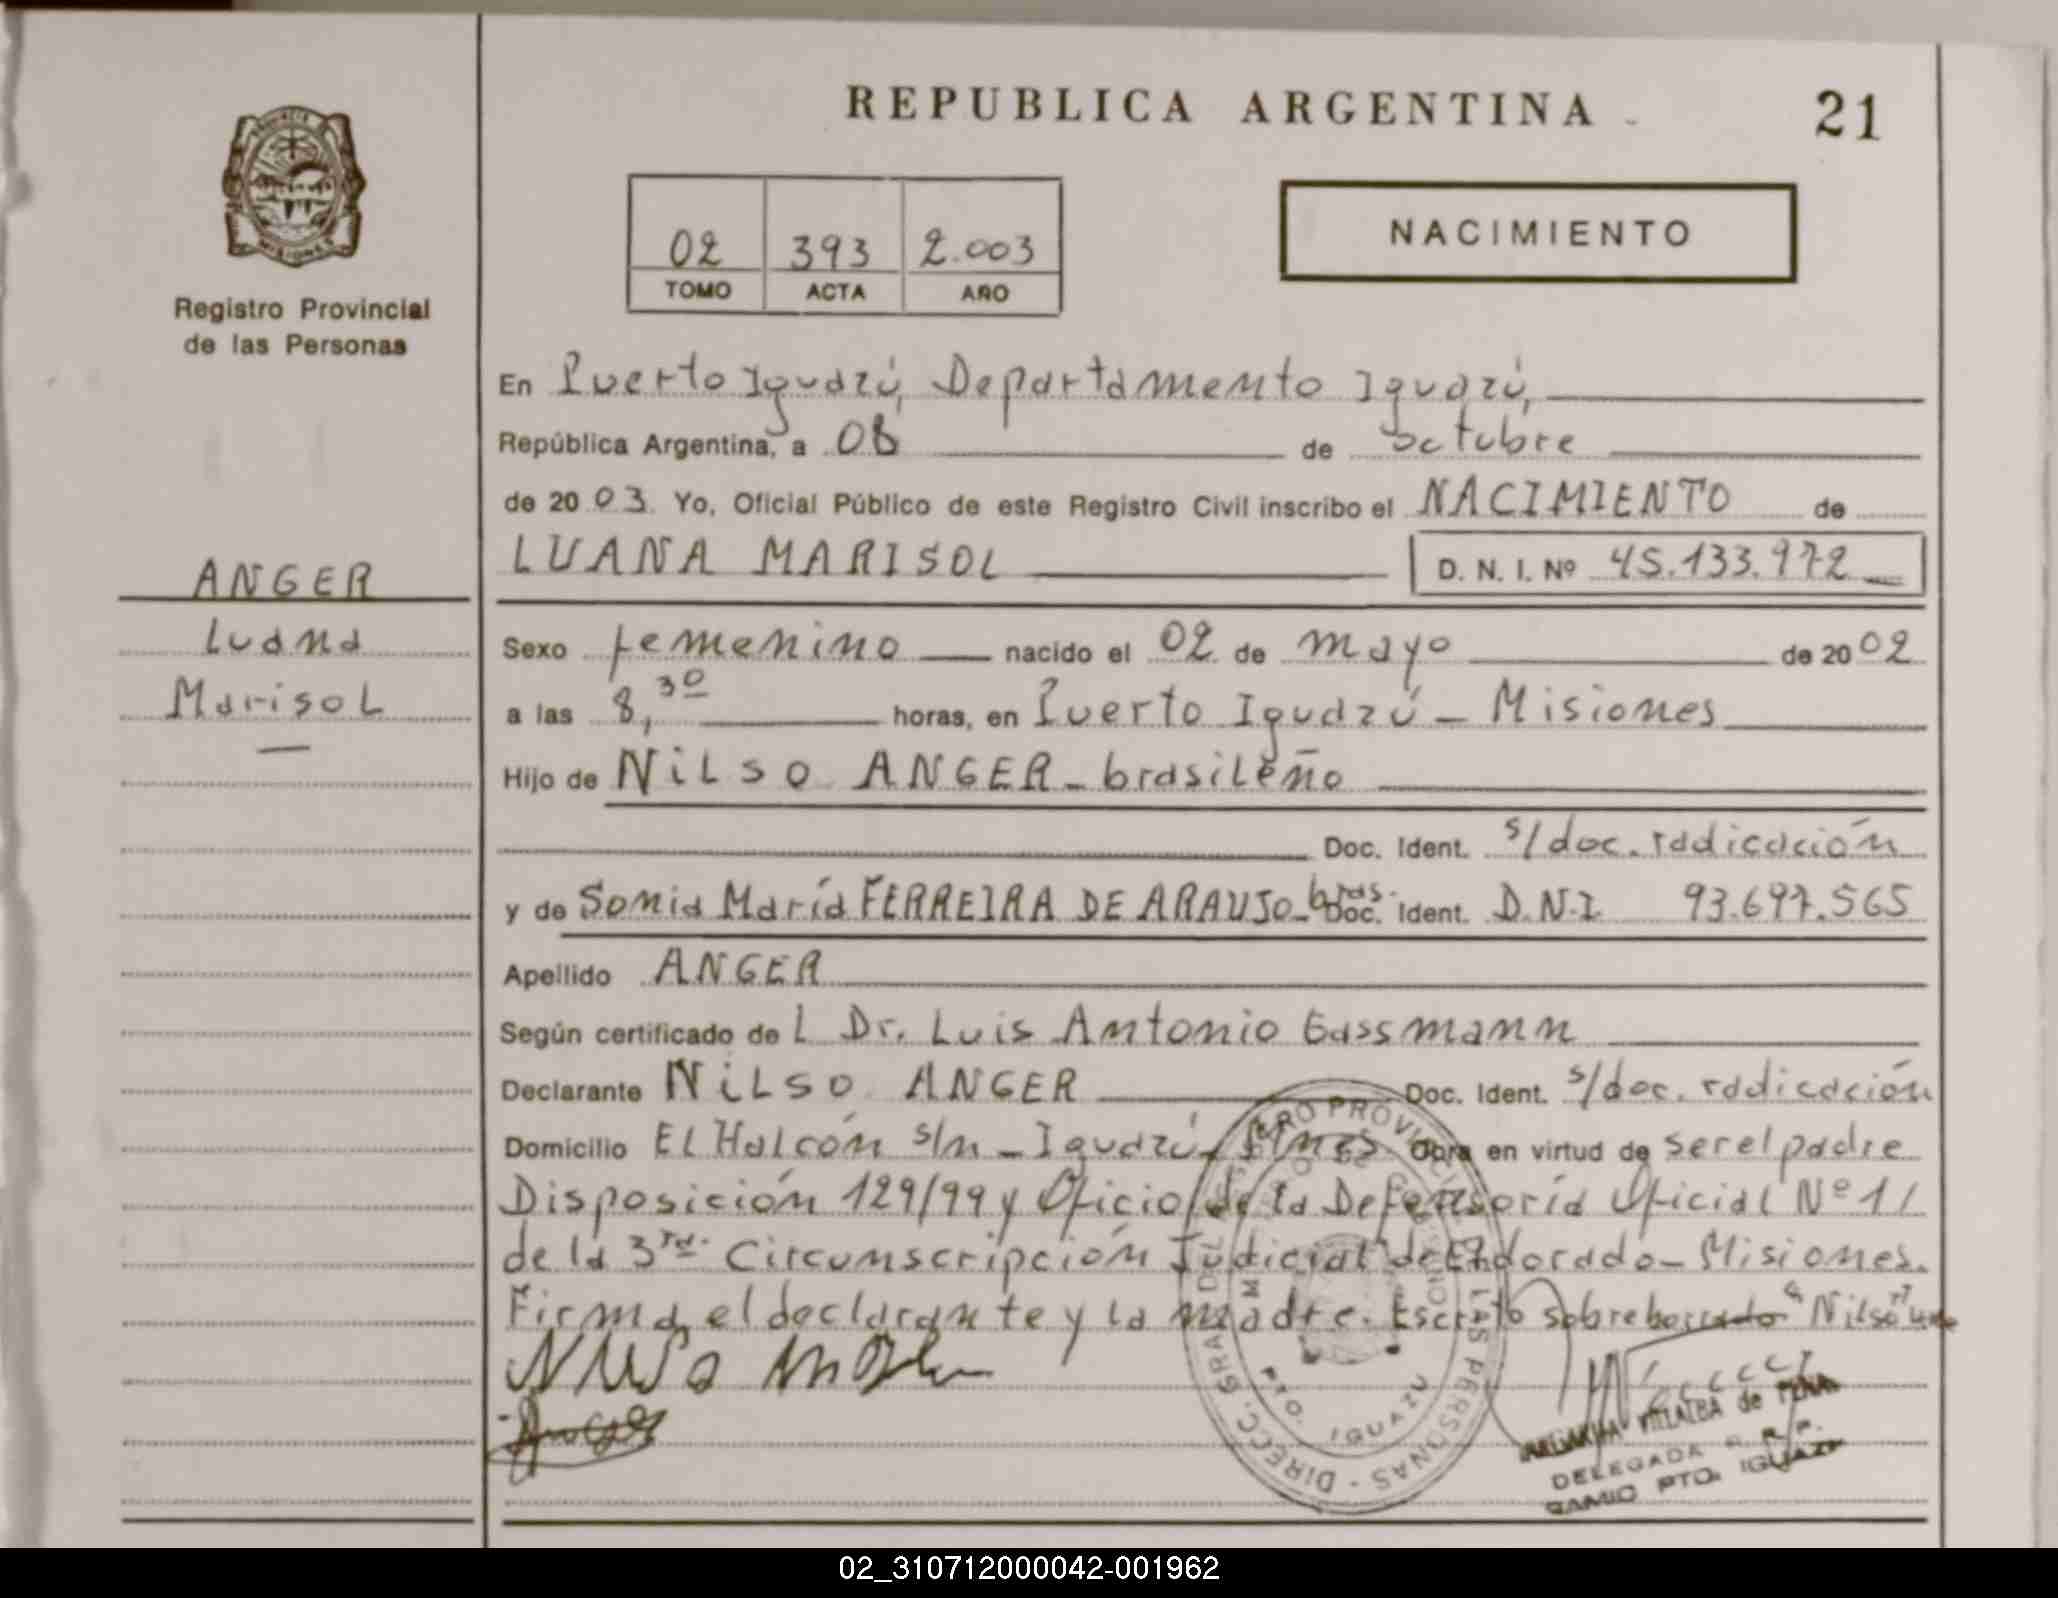 REPUBLICA ARGENTINA
21
PROVINCIA
MISIONES
Registro Provincial
de las Personas
02 393 2.003
TOMO ACTA AÑO
NACIMIENTO
En Puerto Iguazú, Departamento Iguazú,
República Argentina, a 08 de octubre
de 2003 Yo, Oficial Público de este Registro Civil inscribo el NACIMIENTO de
LUANA MARISOL D. N. I. Nº 45.133.972
ANGER
Luana
Marisol
Sexo femenino nacido el 02 de mayo de 2002
a las 8,30 horas, en Puerto Iguazú - Misiones
Hijo de Nilso ANGER - brasileño
Doc. Ident. s/doc. radicación
y de Sonia María FERREIRA DE ARAUJO - bras. Doc. Ident. D.N.I 93.697.565
Apellido ANGER
Según certificado del Dr. Luis Antonio Gassmann
Declarante Nilso ANGER Doc. Ident. s/doc. radicación
Domicilio El Halcón s/n - Iguazú - Mnes. Obra en virtud de ser el padre
Disposición 129/99 y Oficio de la Defensoría Oficial Nº 1/
de la 3ra. Circunscripción Judicial de Eldorado - Misiones.
Firma el declarante y la madre. Escrito sobreborrado "Nilso"
DIRECC. GRAL. DEL REGISTRO PROVINCIAL DE LAS PERSONAS
PTO. IGUAZU
VILLALBA de PEÑA
DELEGADA R. R. P.
PTO. IGUAZU
02_310712000042-001962